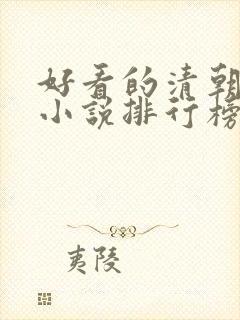 好看的清朝
小说排行榜
夷陵